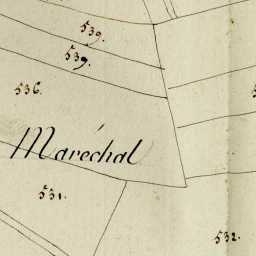 539.
539.
536.
Maréchal
531.
532.